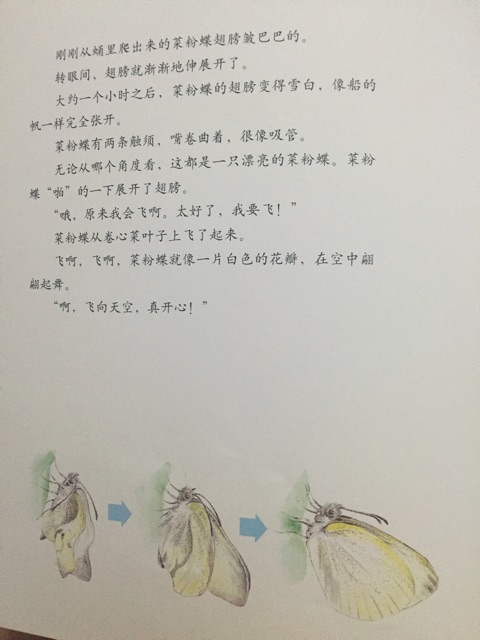 刚刚从蛹里爬出来的菜粉蝶翅膀皱巴巴的。
转眼间，翅膀就渐渐地伸展开了。
大约一个小时之后，菜粉蝶的翅膀变得雪白，像船的
帆一样完全张开。
菜粉蝶有两条触须，嘴卷曲着，很像吸管。
无论从哪个角度看，这都是一只漂亮的菜粉蝶。菜粉
蝶“啪”的一下展开了翅膀。
“哦，原来我会飞啊。太好了，我要飞！”
菜粉蝶从卷心菜叶子上飞了起来。
飞啊，飞啊，菜粉蝶就像一片白色的花瓣，在空中翩
翩起舞。
“啊，飞向天空，真开心！”